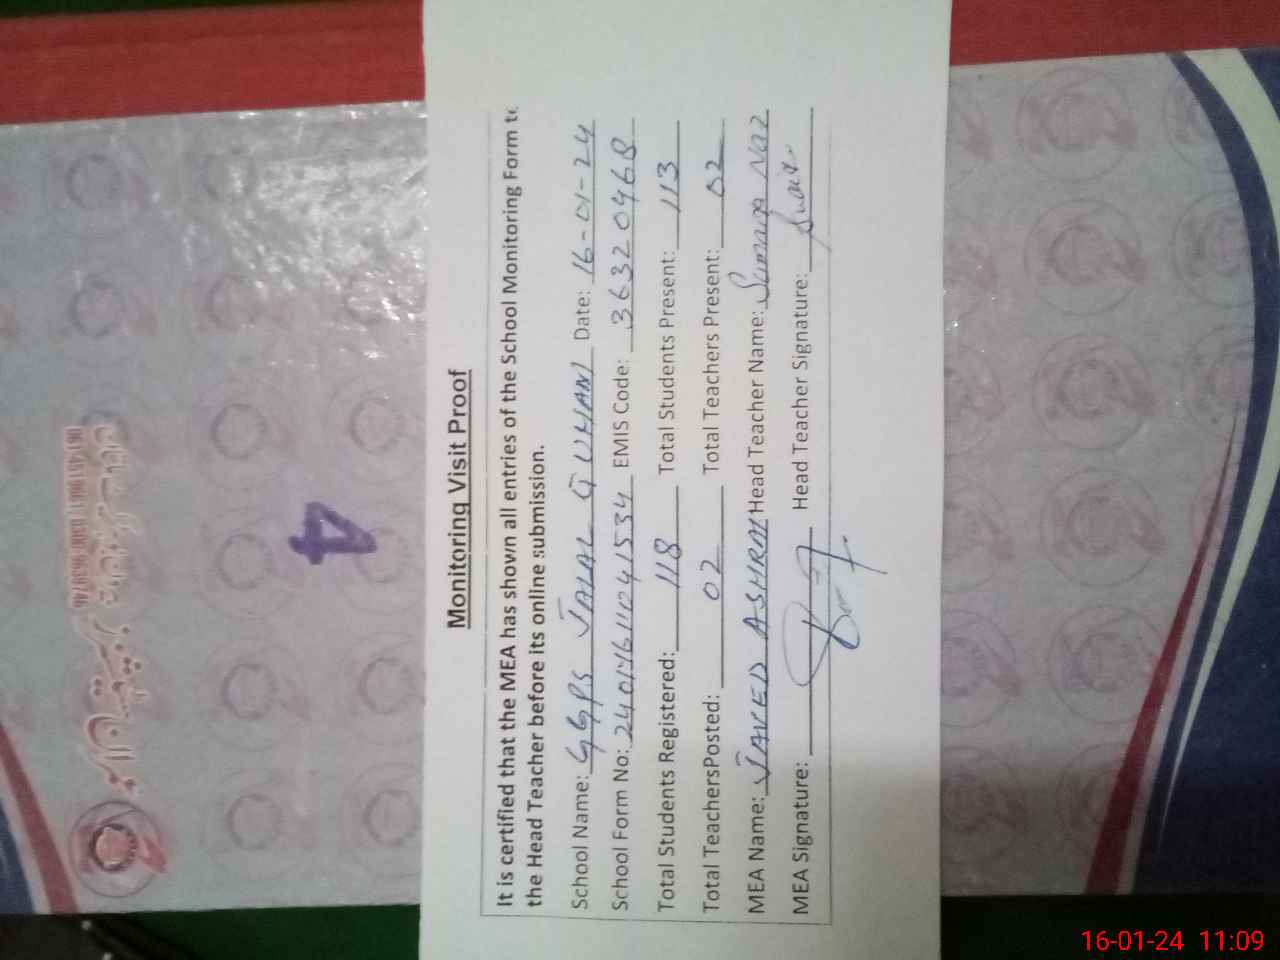 Monitoring Visit Proof
It is certified that the MEA has shown all entries of the School Monitoring Form to
the Head Teacher before its online submission.
School Name: GGPS JALAL QUHANI Date: 16-01-24
School Form No: EMIS Code: 36320468
Total Students Registered: 118 Total Students Present: 113
Total TeachersPosted: 02 Total Teachers Present: 02
MEA Name: JAVED ASHRAF Head Teacher Name: Sumaira Naz
MEA Signature: Head Teacher Signature:
4
16-01-24 11:09